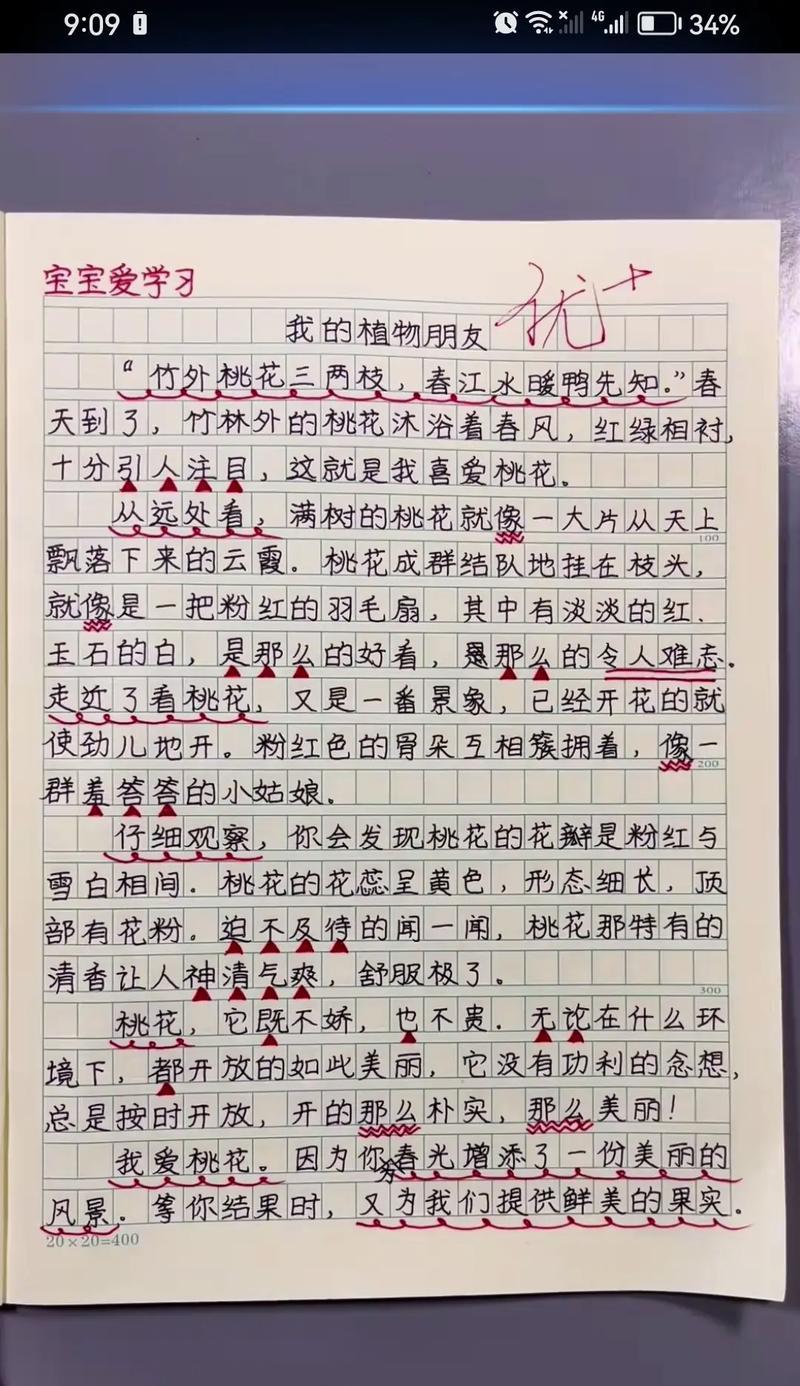 9:09 4G 34%
宝宝爱学习
优+
我的植物朋友
“竹外桃花三两枝，春江水暖鸭先知.”春
天到了，竹林外的桃花沐浴着春风，红绿相衬，
十分引人注目，这就是我喜爱桃花。
从远处看，满树的桃花就像一大片从天上
100
飘落下来的云霞。桃花成群结队地挂在枝头，
就像是一把粉红的羽毛扇，其中有淡淡的红、
玉石的白，是那么的好看，是那么的令人难忘。
走近了看桃花，又是一番景象，已经开花的就
使劲儿地开。粉红色的骨朵互相簇拥着，像一
200
群羞答答的小姑娘。
仔细观察，你会发现桃花的花瓣是粉红与
雪白相间．桃花的花蕊呈黄色，形态细长，顶
部有花粉。迫不及待的闻一闻，桃花那特有的
清香让人神清气爽，舒服极了。
300
桃花，它既不娇，也不贵．无论在什么环
境下，都开放的如此美丽，它没有功利的念想，
总是按时开放，开的那么朴实，那么美丽！
我爱桃花。因为你为春光增添了一份美丽的
风景。等你结果时，又为我们提供鲜美的果实。
20×20=400